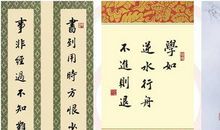 書到用時方恨少
事非經過不知難
學如
逆水行舟
不進則退